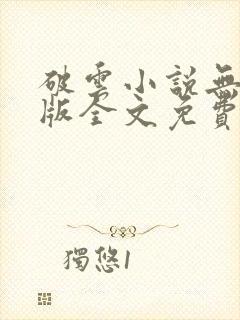 破雲小說無
版全文免費
獨悠1